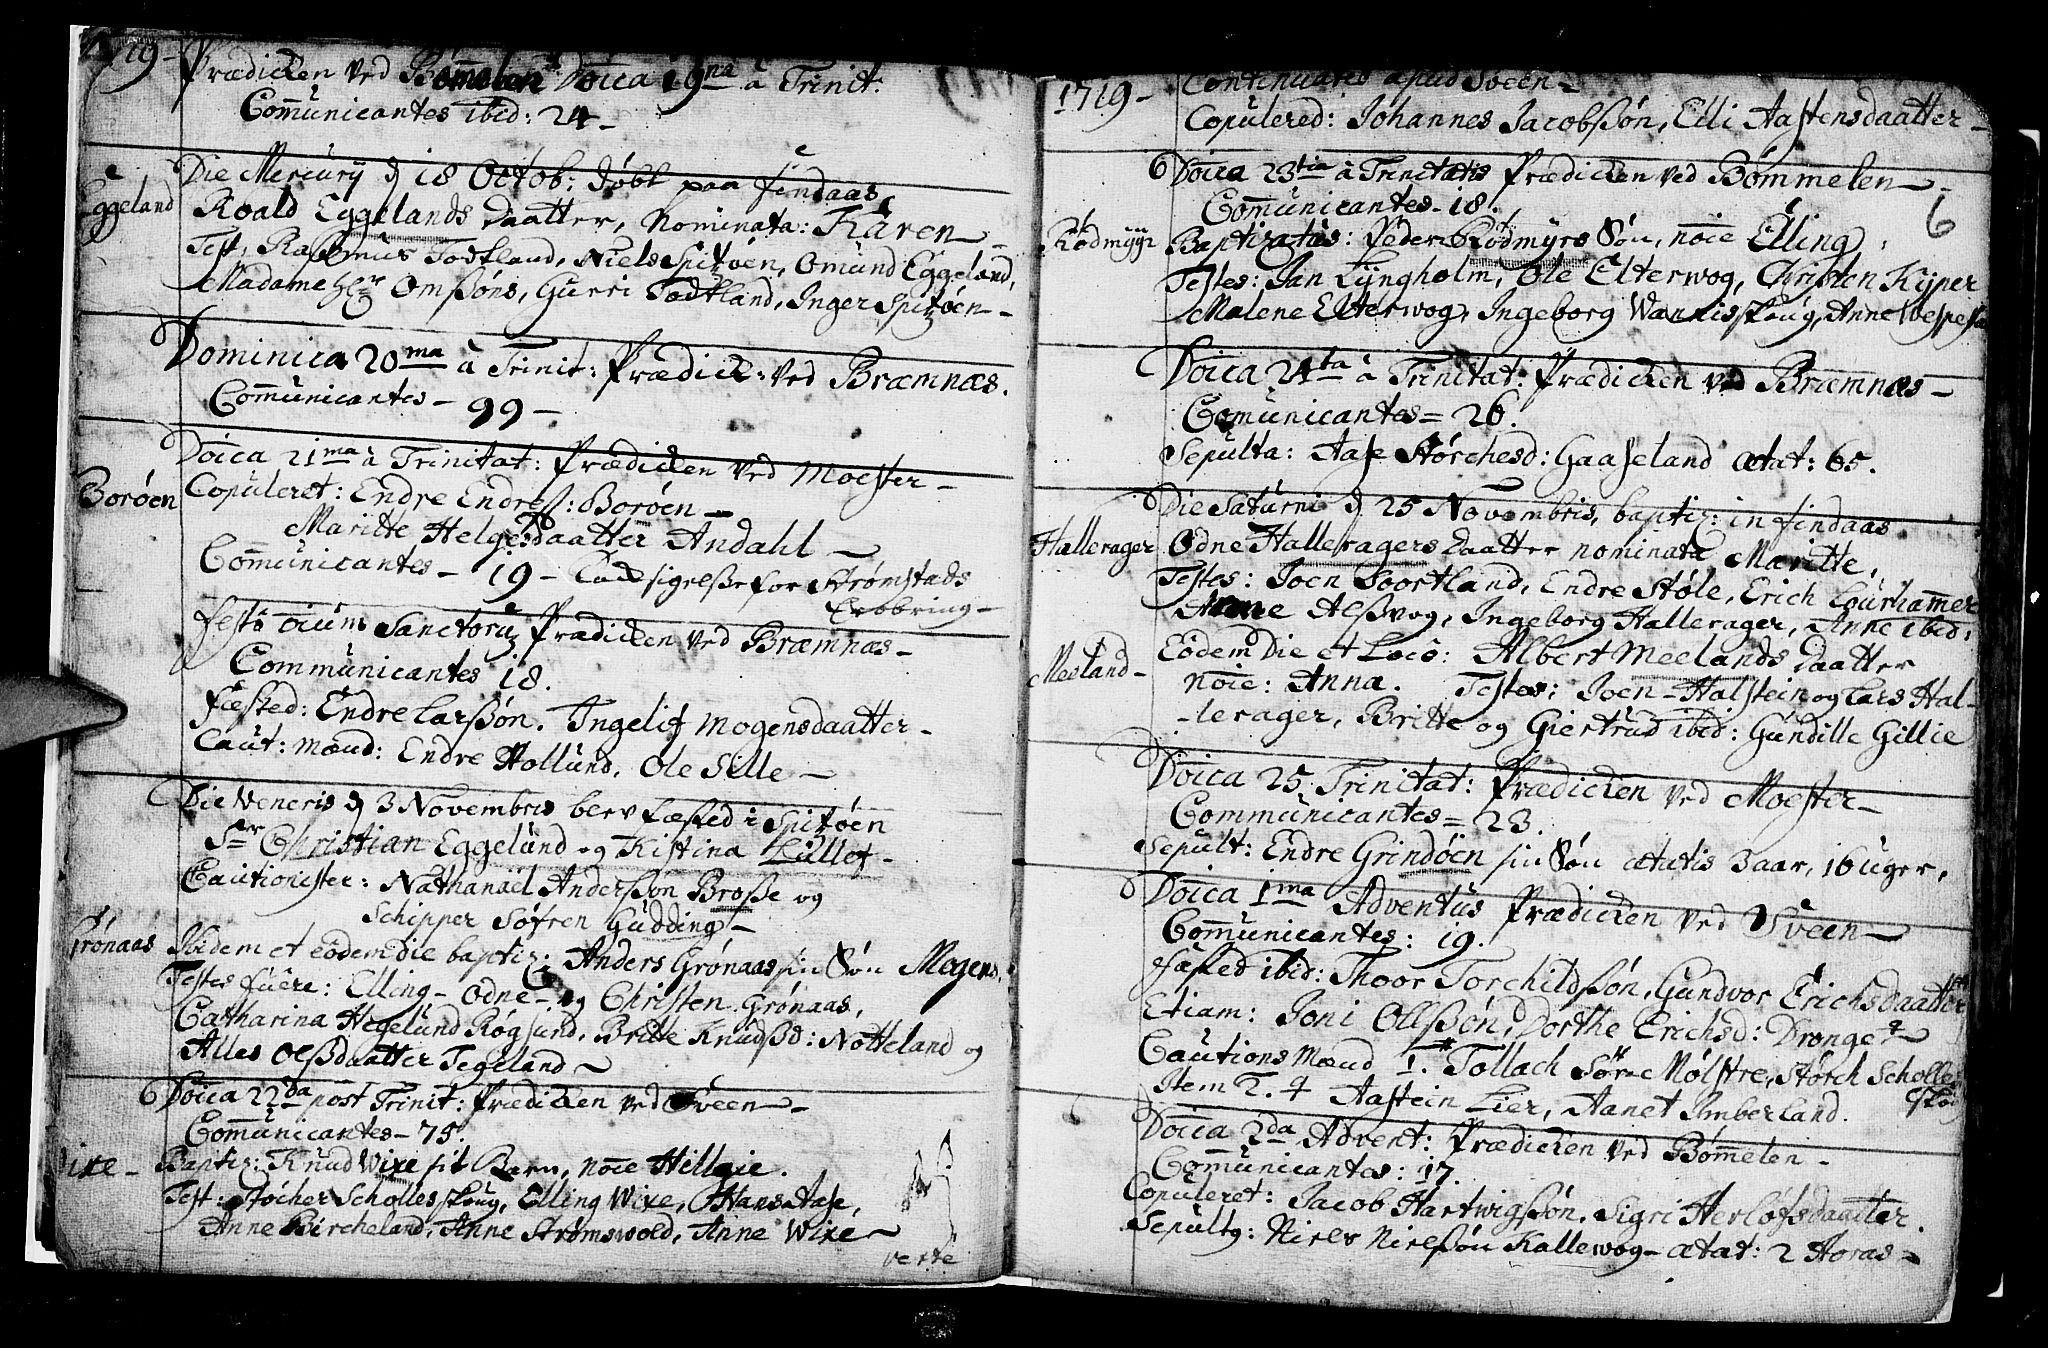 1719-
Prædicken ved Bømmelen Doica 19na à Trinit:
Com̄unicantes ibid: 24-
Die Mercurÿ d 18 Octob: døbt paa Findaas
Eggeland
Roald Eggelands Daatter, Nominata: Karen
Test: Rasmus Todtland, Niels Spitzøen, Omund Eggeland,
Madame Omssøns, Gurri Todtland, Inger Spitzøen-
Dominica 20ma à Trinit: Prædick: ved Bræmnæs.
Com̄unicantes- 99-
Doica 21ma à Trinitat: Prædicken ved Moester-
Borøen
Copuleret: Endre Endress: Borøen-
Maritte Helgesdaatter Andahl-
Com̄unicantes- 19- Tacksigelse for Strømstads
Erobring-
Festo oium Sanctoru Prædicken ved Bræmnæs-
Communicantes 18.
Fæsted: Endre Larssøn. Ingelif Mogensdaatter-
Caut: mænd: Endre Hollund. Ole Sille-
Die Veneris d 3 Novembris blev fæsted i Spitzøen
Sr Christian Eggelund og Kistina Lüllef-
Cautionister: Nathanaël Anderssøn Brosse og
Schipper Søfren Gudding-
Grønaas
Ibidem et eodem die baptiz: Anders Grønaas sin Søn Mogens.
Testes fuere: Elling- Odne- og Christen Grønaas,
Catharina Hegelund Røgsund, Britte Knudsd: Notteland og
Alles Olssdaatter Tegeland-
Doica 22da post Trinit: Prædicken ved Sveen-
Com̄unicantes- 75.
Wixe-
Baptiz: Knud Wixe sit Barn, noie Hillgie.
Test: Støcher Schollesskoug, Elling Wixe, Hans Aase,
Anne Bircheland, Anne Strømswold, Anne Wixe-
verte
1719-
Continuared apud Sveen-
Copulered: Johannes Jacobssøn, Elli Aastensdaatter-
Doica 23tia à Trinitatis Prædicken ved Bømmelen-
Com̄unicantes- 18.
6
Rødmÿr
Baptizatus: Peder Rødmÿrs Søn, noie Elling,
Testes: Jan Lÿngholm, Ole Elterwog, Christen Kÿper
Malene Elterwog, Ingeborg Wernisskoug, Anne
Doica 24ta à Trinitat: Prædicken ved Bræmnæs-
Com̄unicantes= 26.
Sepulta: Aase Størchesd: Gaaseland ætat: 65.
Die Saturni d 25 Novembris, baptiz: in Findaas
Hallerager
Odne Halleragers Daatter nominata Maritte,
Testes: Joen Soortland, Endre Støle, Erich Lourhammer
Anne Alsswog, Ingeborg Hallerager, Anne ibid:
Meeland-
Eodem Die et Loco: Albert Meelands Daatter
noie: Anna. Testes: Joen- Halstein og Lars Hal-
-lerager, Britte og Giertrud ibid: Gundille Gillie
Doica 25 Trinitat: Prædicken ved Moester-
Communicantes= 23.
Sepult: Endre Grindøen sin Søn ætatis 3 aar, 16 uger,
Doica 1ma Adventus Prædicken ved Sveen-
Com̄unicantes: 19.
Fæsted ibid: Thoor Torchildssøn, Gundvor Erichsdaatter
Etiam: Joni Olssøn, Dorthe Erichsd: Drange
Cautions Mænd 1. Tollach Sør-Mølstre, Størch Scholles
skou
Item 2. Aastein Lier, Aanet Imberland.
Doica 2da Advent: Prædicken ved Bømelen-
Com̄unicantes: 17.
Copuleret: Jacob Hartwigssøn, Sigri Herlofsdaatter.
Sepultq: Niels Nielssøn Kallewog- ætat: 2 Horas-